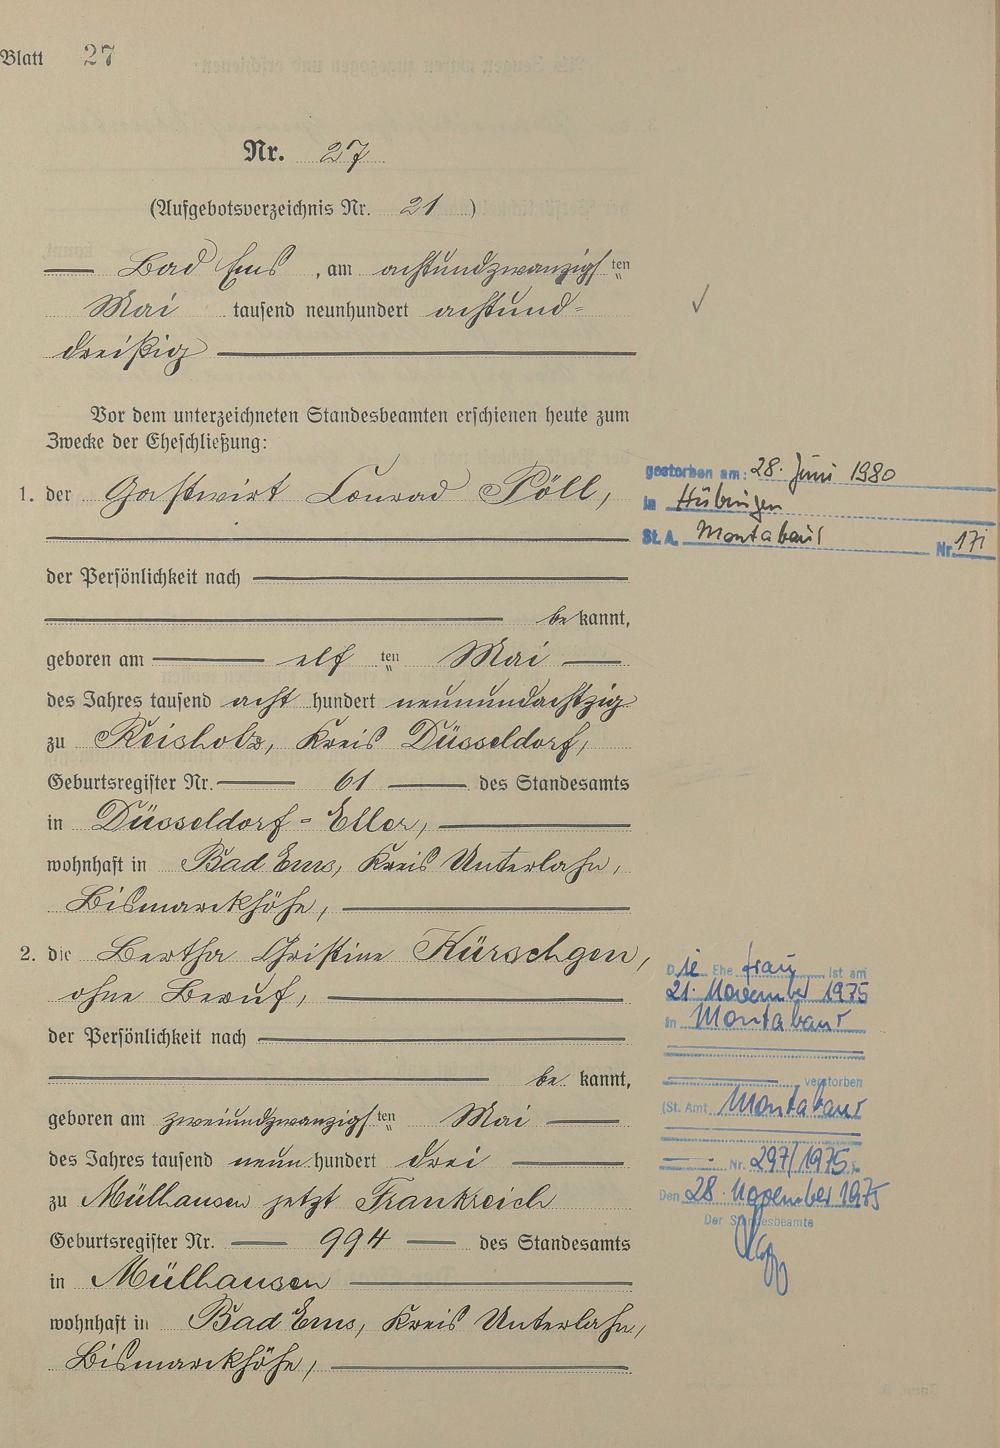 Blatt 27
Nr. 27
(Aufgebotsverzeichnis Nr. 21)
Bad Ems, am achtundzwanzigsten
Mai tausend neunhundert achtund-
dreißig
Vor dem unterzeichneten Standesbeamten erschienen heute zum
Zwecke der Eheschließung:
1. der Gastwirt Conrad Pöll,
gestorben am: 28. Juni 1980
in Hübingen
St. A. Montabaur Nr. 171
der Persönlichkeit nach
be kannt,
geboren am elf ten Mai
des Jahres tausend acht hundert neunundachtzig
zu Reisholz, Kreis Düsseldorf,
Geburtsregister Nr. 61 des Standesamts
in Düsseldorf-Eller,
wohnhaft in Bad Ems, Kreis Unterlahn,
Bismarckhöhe,
2. die Bertha Christine Kürschgen,
ohne Beruf,
der Persönlichkeit nach
be kannt,
geboren am zweiundzwanzigsten Mai
des Jahres tausend neun hundert drei
zu Mülhausen jetzt Frankreich
Geburtsregister Nr. 994 des Standesamts
in Mülhausen
wohnhaft in Bad Ems, Kreis Unterlahn,
Bismarckhöhe,
Die Ehefrau ist am
21. November 1975
in Montabaur
verstorben
(St. Amt Montabaur
Nr. 297/1975).
Den 28. November 1975
Der Standesbeamte